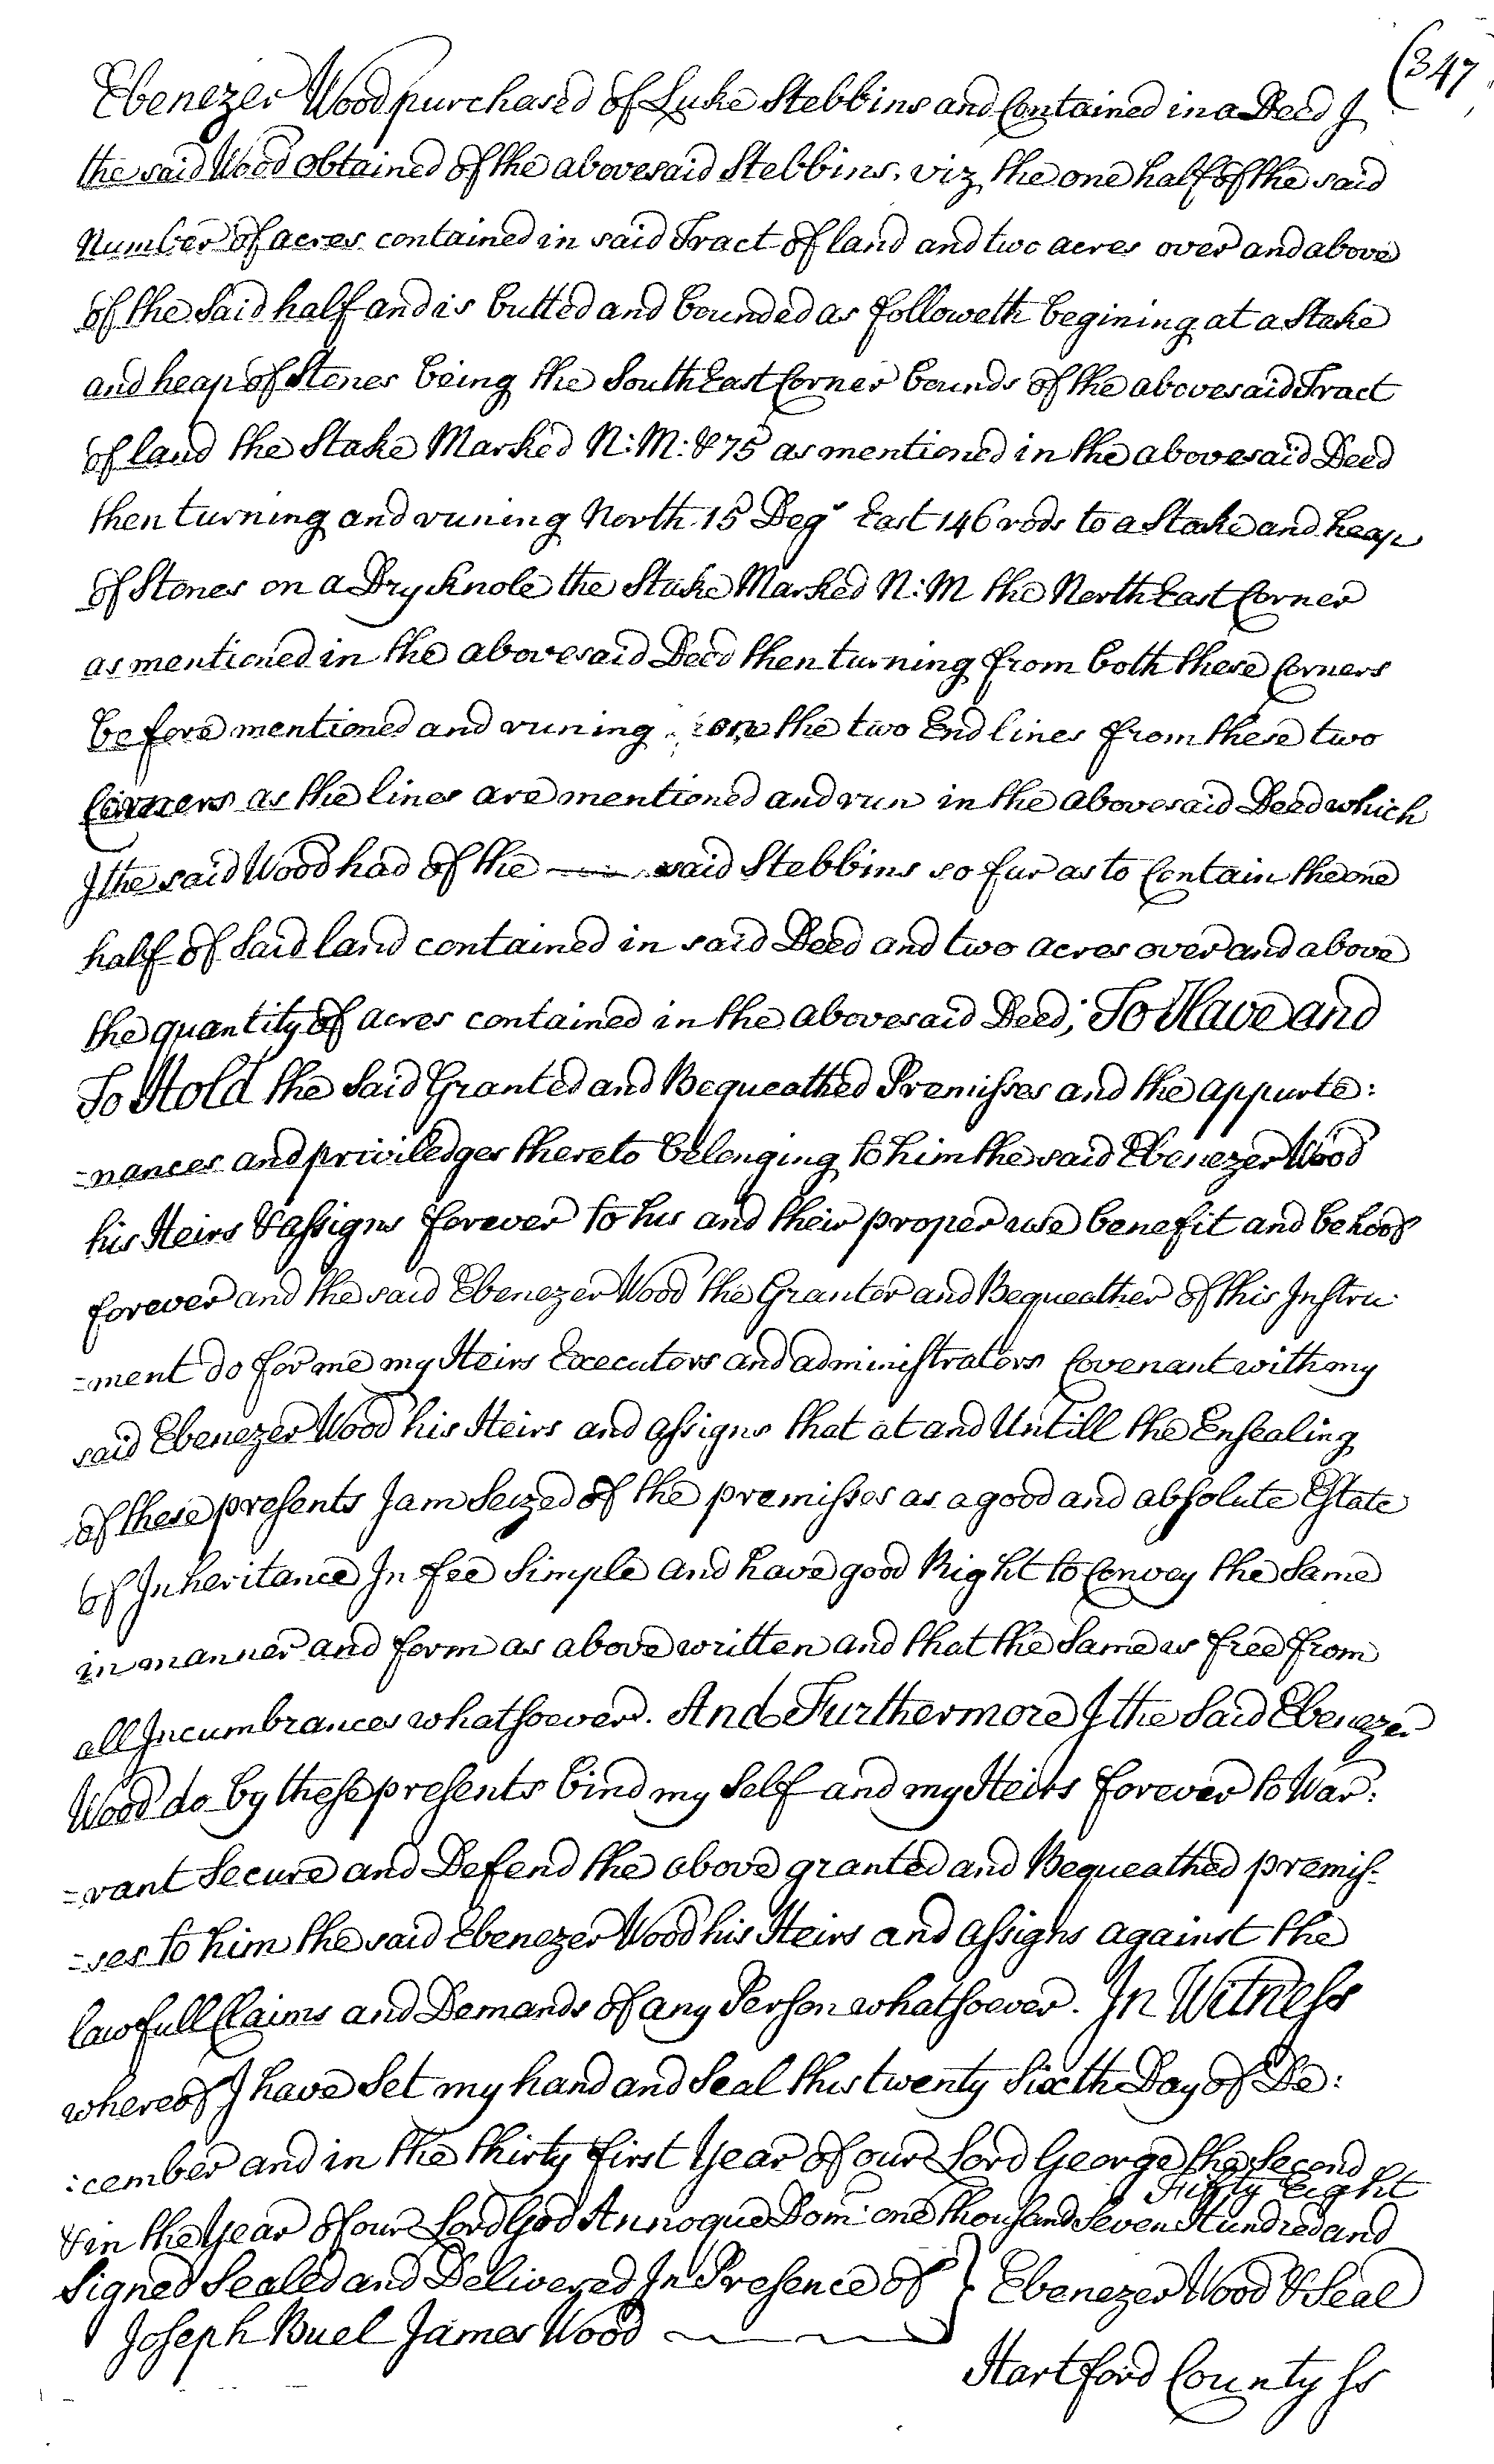 (347
Ebenezer Wood purchased of Luke Stebbins and Contained in a Deed I
the said Wood obtained of the abovesaid Stebbins, viz the one half of the said
Number of acres contained in said Tract of land and two acres over and above
of the Said half and is butted and bounded as followeth begining at a Stake
and heap of Stones being the South East Corner bounds of the abovesaid Tract
of land the Stake Marked N:M: & 75 as mentioned in the abovesaid Deed
then turning and runing North 15 Degs East 146 rods to a Stake and heap
of Stones on a Dry Knole the Stake Marked N:M the North East Corner
as mentioned in the abovesaid Deed then turning from both these Corners
before mentioned and runing on the two End lines from these two
Corners as the lines are mentioned and run in the abovesaid Deed which
I the said Wood had of the said Stebbins so fur as to Contain the one
half of Said land contained in said Deed and two acres over and above
the quantity of acres contained in the abovesaid Deed; To Have and
To Hold the Said Granted and Bequeathed Premisses and the appurte:
=nances and priviledges thereto belonging to him the said Ebenezer Wood
his Heirs & assigns forever to his and their proper use benefit and behoof
forever and the said Ebenezer Wood the Grantor and Bequeather of this Instru-
=ment do for me my Heirs Executors and administrators Covenant with my
said Ebenezer Wood his Heirs and assigns that at and Untill the Ensealing
of these presents I am Seized of the premisses as a good and absolute Estate
of Inheritance In fee Simple and have good Right to Convey the Same
in manner and form as above written and that the Same is free from
all Incumbrances whatsoever. And Furthermore I the Said Ebenezer
Wood do by these presents bind my Self and my Heirs forever to War:
=rant Secure and Defend the above granted and Bequeathed premis-
=ses to him the said Ebenezer Wood his Heirs and assigns against the
lawfull Claims and Demands of any Person whatsoever. In Witness
whereof I have Set my hand and Seal this twenty Sixth Day of De:
:cember and in the thirty first Year of our Lord George the Second
Fifty Eight
& in the Year of our Lord God Annoque Dom: one thousand Seven Hundred and
Signed Sealed and Delivered In Presence of } Ebenezer Wood & Seal
Joseph Buel James Wood
Hartford County Ss